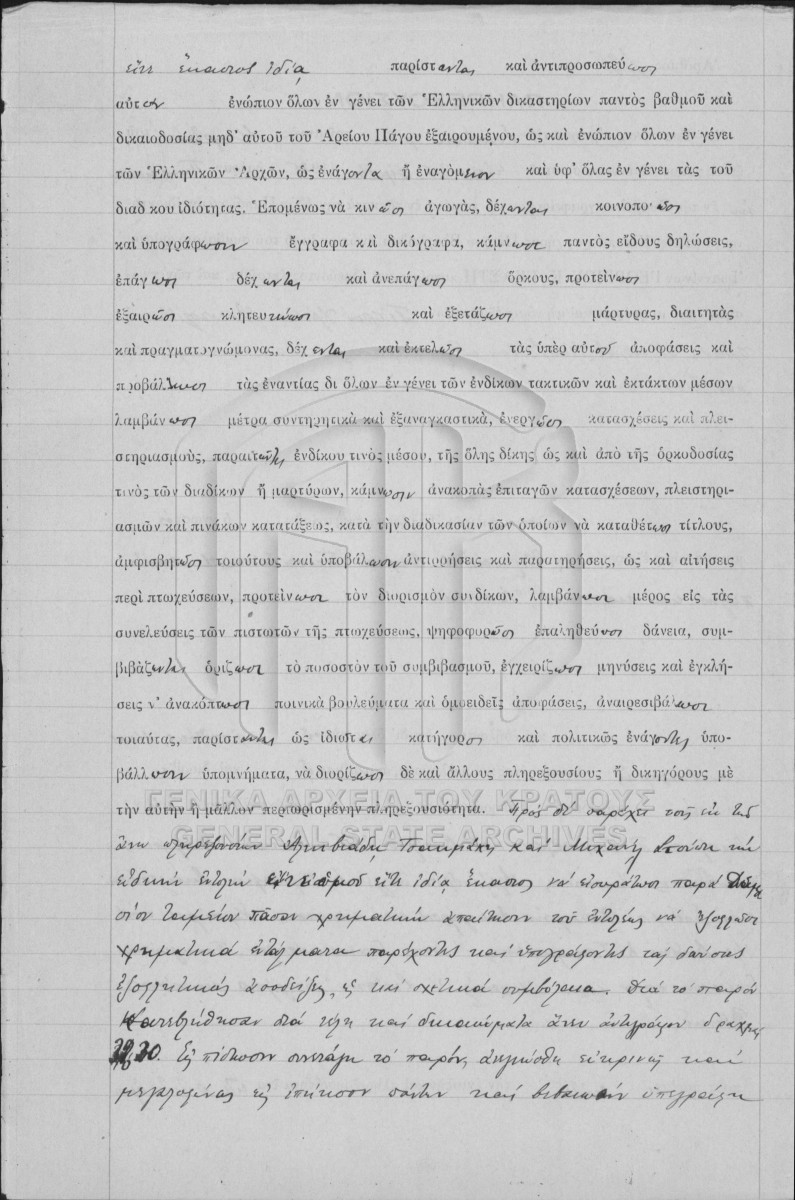 εἴτε ἕκαστος ἰδίᾳ παρίστανται καὶ ἀντιπροσωπεύωσι
αὐτὸν ἐνώπιον ὅλων ἐν γένει τῶν Ἑλληνικῶν δικαστηρίων παντὸς βαθμοῦ καὶ
δικαιοδοσίας μηδ' αὐτοῦ τοῦ Ἀρείου Πάγου ἐξαιρουμένου, ὡς καὶ ἐνώπιον ὅλων ἐν γένει
τῶν Ἑλληνικῶν Ἀρχῶν, ὡς ἐνάγοντα ἢ ἐναγόμενον καὶ ὑφ' ὅλας ἐν γένει τὰς τοῦ
διαδίκου ἰδιότητας. Ἑπομένως νὰ κινῶσι ἀγωγάς, δέχωνται κοινοποιῶσι
καὶ ὑπογράφωσιν ἔγγραφα καὶ δικόγραφα, κάμνωσι παντὸς εἴδους δηλώσεις,
ἐπάγωσι δέχωνται καὶ ἀνεπάγωσι ὅρκους, προτείνωσι
ἐξαιρῶσι κλητεύωσι καὶ ἐξετάζωσι μάρτυρας, διαιτητὰς
καὶ πραγματογνώμονας, δέχωνται καὶ ἐκτελῶσι τὰς ὑπὲρ αὐτοῦ ἀποφάσεις καὶ
προβάλλωσι τὰς ἐναντίας δι ὅλων ἐν γένει τῶν ἐνδίκων τακτικῶν καὶ ἐκτάκτων μέσων
λαμβάνωσι μέτρα συντηρητικὰ καὶ ἐξαναγκαστικά, ἐνεργῶσι κατασχέσεις καὶ πλει-
στηριασμούς, παραιτῶνται ἐνδίκου τινὸς μέσου, τῆς ὅλης δίκης ὡς καὶ ἀπὸ τῆς ὁρκοδοσίας
τινὸς τῶν διαδίκων ἢ μαρτύρων, κάμνωσιν ἀνακοπὰς ἐπιταγῶν κατασχέσεων, πλειστηρι-
ασμῶν καὶ πινάκων κατατάξεως, κατὰ τὴν διαδικασίαν τῶν ὁποίων νὰ καταθέτωσι τίτλους,
ἀμφισβητῶσι τοιούτους καὶ ὑποβάλωσιν ἀντιρρήσεις καὶ παρατηρήσεις, ὡς καὶ αἰτήσεις
περὶ πτωχεύσεων, προτείνωσι τὸν διορισμὸν συνδίκων, λαμβάνωσι μέρος εἰς τὰς
συνελεύσεις τῶν πιστωτῶν τῆς πτωχεύσεως, ψηφοφορῶσι ἐπαληθεύωσι δάνεια, συμ-
βιβάζωνται ὁρίζωσι τὸ ποσοστὸν τοῦ συμβιβασμοῦ, ἐγχειρίζωσι μηνύσεις καὶ ἐγκλή-
σεις ν' ἀνακόπτωσι ποινικὰ βουλεύματα καὶ ὁμοειδεῖς ἀποφάσεις, ἀναιρεσιβάλωσι
τοιαύτας, παρίστανται ὡς ἰδιῶται κατήγοροι καὶ πολιτικῶς ἐνάγοντες ὑπο-
βάλλωσιν ὑπομνήματα, νὰ διορίζωσι δὲ καὶ ἄλλους πληρεξουσίους ἢ δικηγόρους μὲ
τὴν αὐτὴν ἢ μᾶλλον περιωρισμένην πληρεξουσιότητα. Πρὸς δὲ παρέχει τοῖς ἐκ τῶν
ἄνω πληρεξουσίων Ἀλκιβιάδῃ καὶ Μιχαὴλ τὴν
εἰδικὴν ἐντολὴν εἴτε ὁμοῦ εἴτε ἰδίᾳ ἕκαστος νὰ εἰσπράττωσι παρὰ
Ταμείου πᾶσαν χρηματικὴν ἀπαίτησιν τοῦ ἐντολέως νὰ ἐξοφλῶσι
χρηματικὰ ἐντάλματα παρέχοντες καὶ ὑπογράφοντες τὰς δεούσας
ἐξοφλητικὰς ἀποδείξεις, ὡς καὶ σχετικὰ συμβόλαια. Διὰ τὸ παρὸν
κατεβλήθησαν διὰ τέλη καὶ δικαιώματα ἄνευ ἀντιγράφου δραχμαὶ
Εἰς πίστωσιν συνετάγη τὸ παρόν, ἀνεγνώσθη εὐκρινῶς καὶ
μεγαλοφώνως εἰς ἐπήκοον πάντων καὶ βεβαιωθὲν ὑπεγράφη
ΓΕΝΙΚΑ ΑΡΧΕΙΑ ΤΟΥ ΚΡΑΤΟΥΣ
GENERAL STATE ARCHIVES